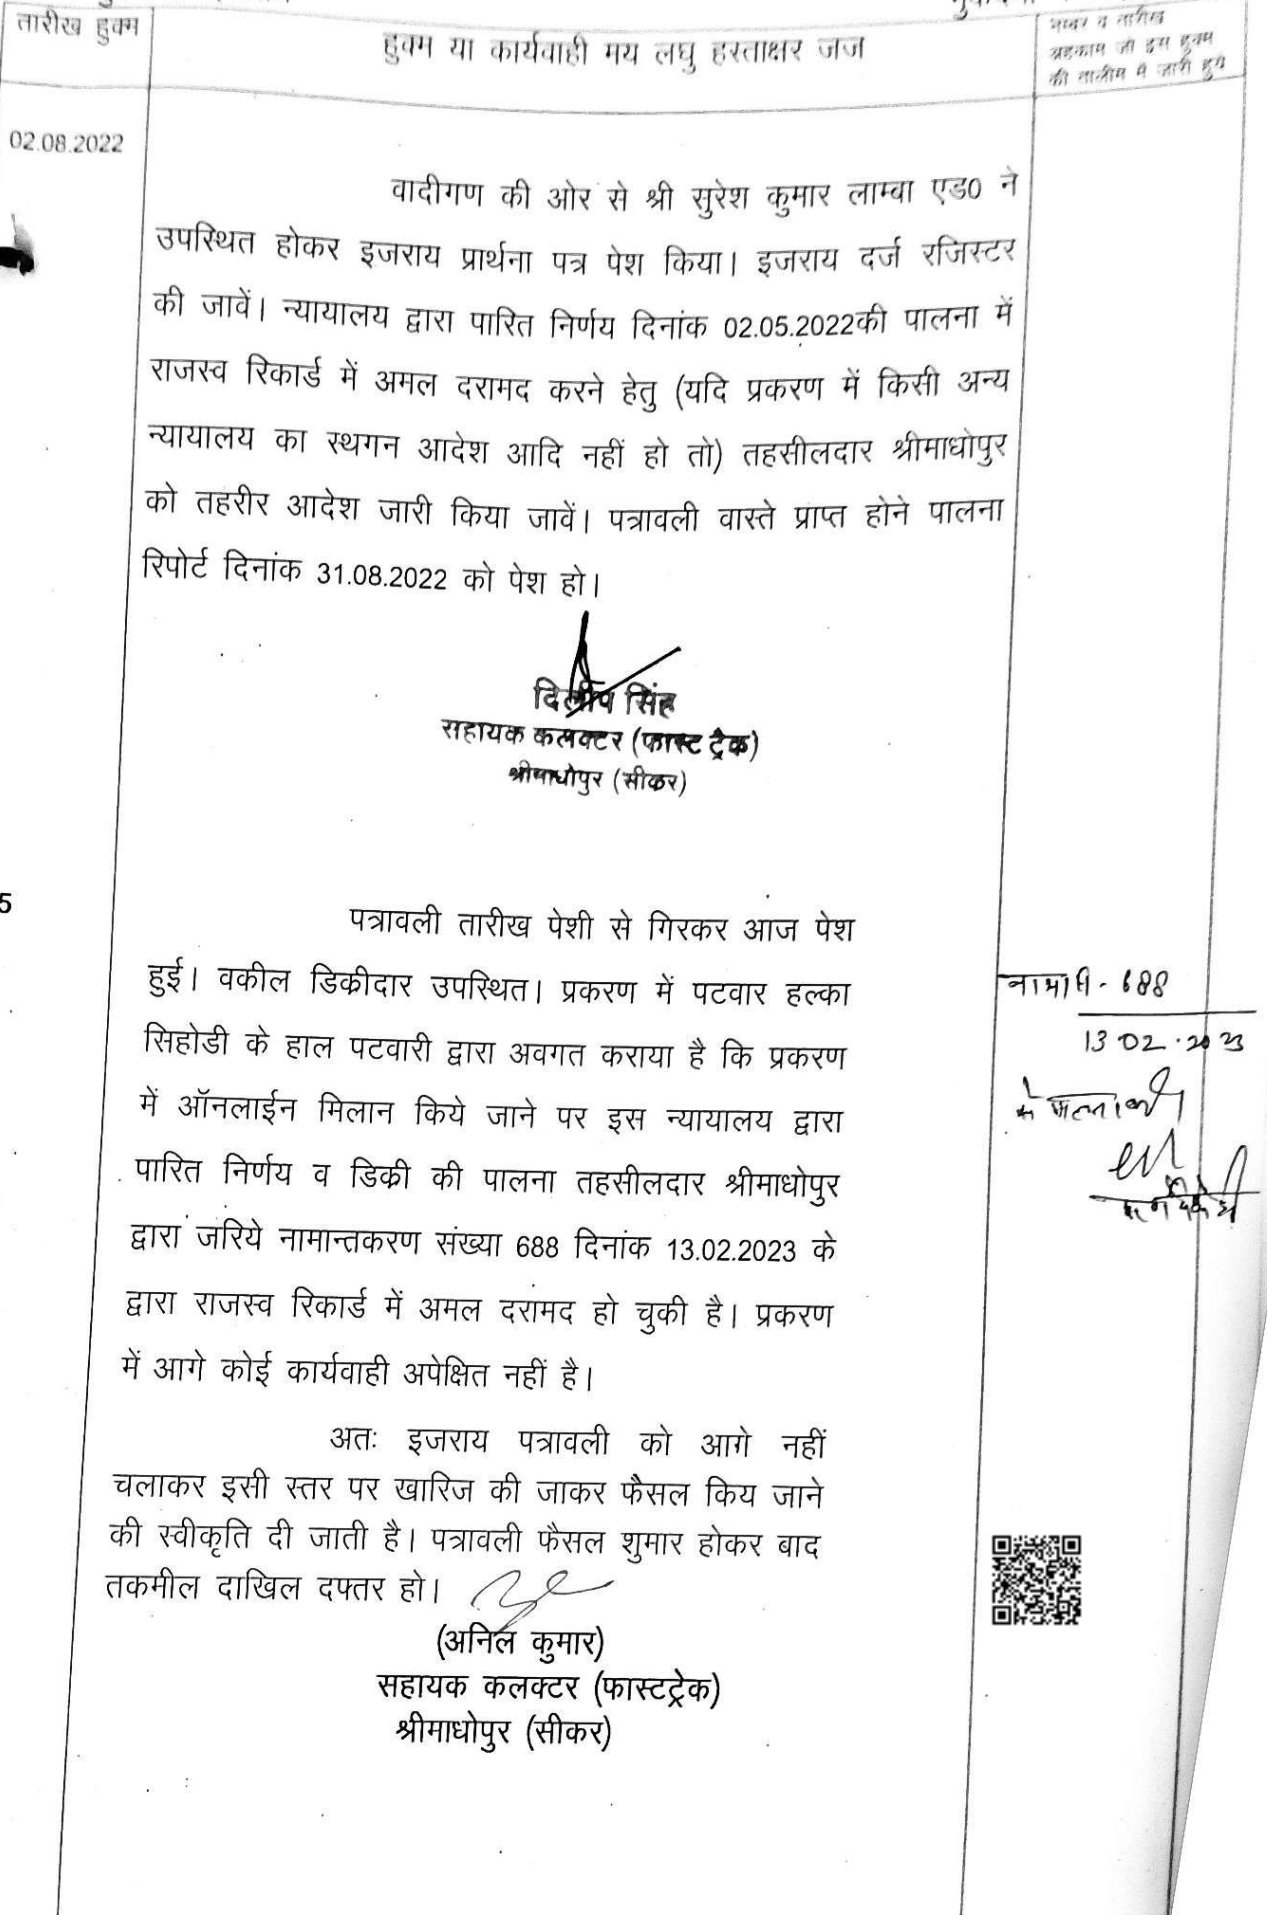 तारीख हुक्म
हुक्म या कार्यवाही मय लघु हस्ताक्षर जज
नम्बर व तारीख
अहकाम जो इस हुक्म
की तालीम में जारी हुये
02.08.2022
वादीगण की ओर से श्री सुरेश कुमार लाम्बा एड0 ने
उपस्थित होकर इजराय प्रार्थना पत्र पेश किया। इजराय दर्ज रजिस्टर
की जावें। न्यायालय द्वारा पारित निर्णय दिनांक 02.05.2022की पालना में
राजस्व रिकार्ड में अमल दरामद करने हेतु (यदि प्रकरण में किसी अन्य
न्यायालय का स्थगन आदेश आदि नहीं हो तो) तहसीलदार श्रीमाधोपुर
को तहरीर आदेश जारी किया जावें। पत्रावली वास्ते प्राप्त होने पालना
रिपोर्ट दिनांक 31.08.2022 को पेश हो।
दिलीप सिंह
सहायक कलक्टर (फास्ट ट्रैक)
श्रीमाधोपुर (सीकर)
5
पत्रावली तारीख पेशी से गिरकर आज पेश
हुई। वकील डिक्रीदार उपस्थित। प्रकरण में पटवार हल्का
सिहोडी के हाल पटवारी द्वारा अवगत कराया है कि प्रकरण
में ऑनलाईन मिलान किये जाने पर इस न्यायालय द्वारा
पारित निर्णय व डिक्री की पालना तहसीलदार श्रीमाधोपुर
द्वारा जरिये नामान्तकरण संख्या 688 दिनांक 13.02.2023 के
द्वारा राजस्व रिकार्ड में अमल दरामद हो चुकी है। प्रकरण
में आगे कोई कार्यवाही अपेक्षित नहीं है।
688
13 02.2023
अतः इजराय पत्रावली को आगे नहीं
चलाकर इसी स्तर पर खारिज की जाकर फैसल किय जाने
की स्वीकृति दी जाती है। पत्रावली फैसल शुमार होकर बाद
तकमील दाखिल दफ्तर हो।
(अनिल कुमार)
सहायक कलक्टर (फास्टट्रेक)
श्रीमाधोपुर (सीकर)